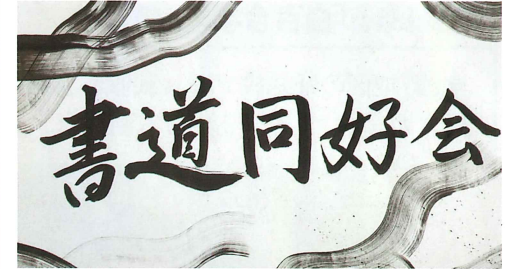 書道同好会